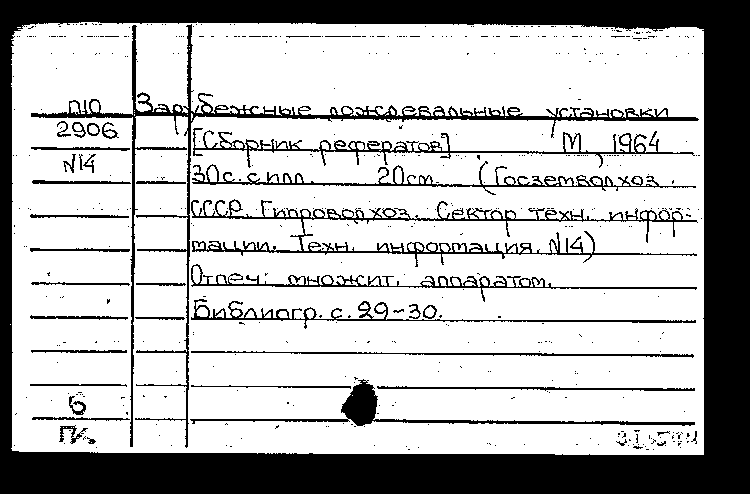 П10 Зарубежные дождевальные установки
2906 [Сборник рефератов] М., 1964
N14 30с. с илл. 20см (Госземводхоз
СССР. Гипроводхоз. Сектор техн. инфор-
мации. Техн. информация. N14)
Отпеч. множит. аппаратом.
Библиогр. с. 29-30.
6